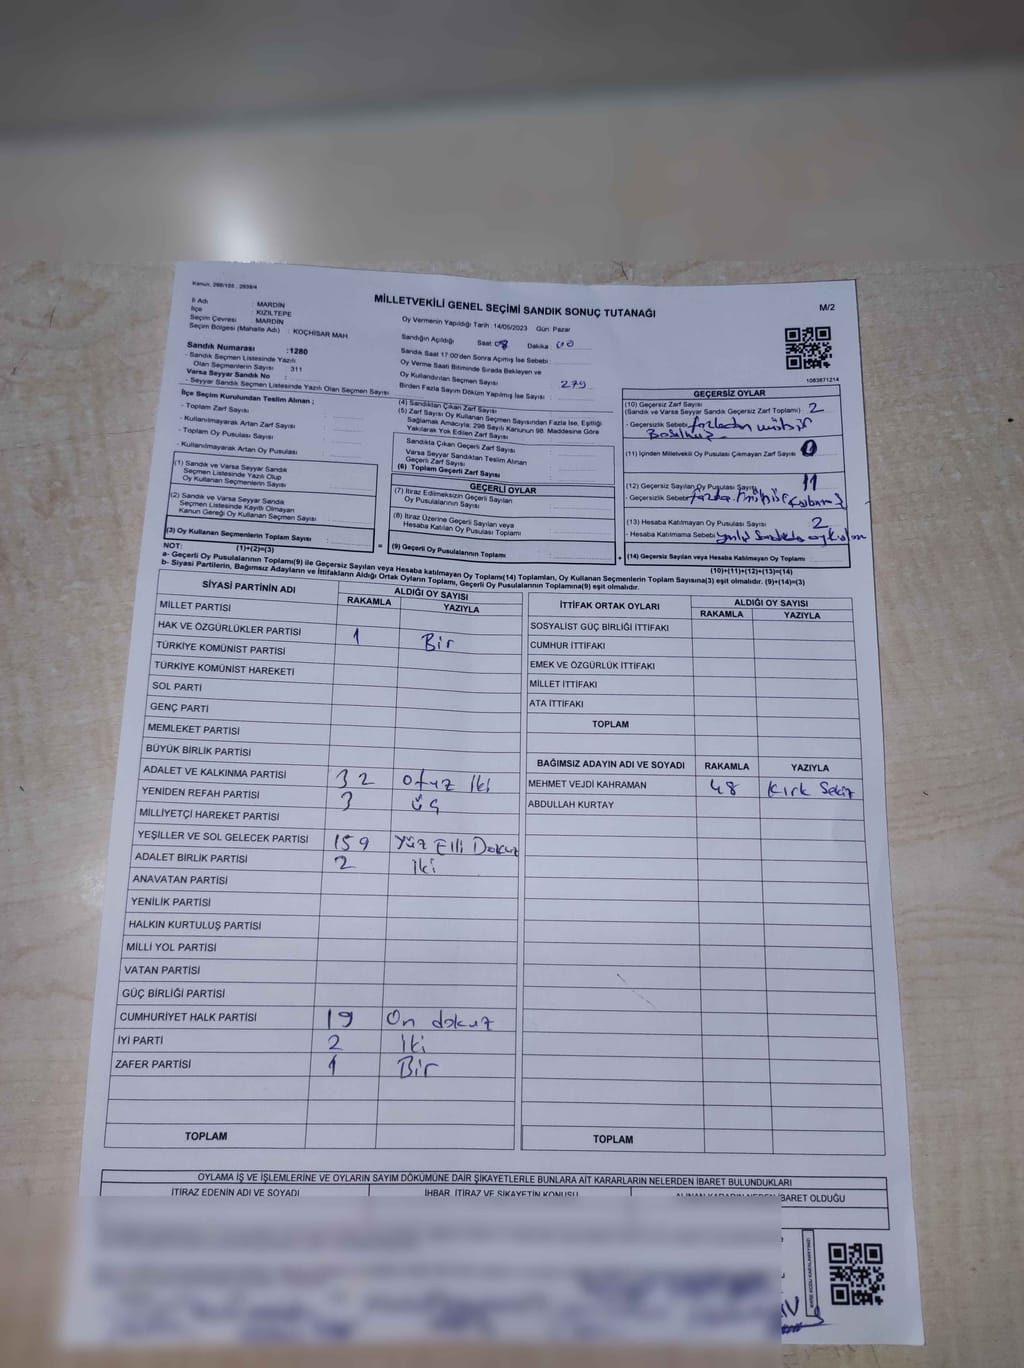 Kanun, 298/105 , 2839/4
MİLLETVEKİLİ GENEL SEÇİMİ SANDIK SONUÇ TUTANAĞI
M/2
İl Adı : MARDİN
İlçe : KIZILTEPE
Seçim Çevresi : MARDİN
Seçim Bölgesi (Mahalle Adı) : KOÇHİSAR MAH
Sandık Numarası : 1280
- Sandık Seçmen Listesinde Yazılı
Olan Seçmenlerin Sayısı : 311
Varsa Seyyar Sandık No :
- Seyyar Sandık Seçmen Listesinde Yazılı Olan Seçmen Sayısı
Oy Vermenin Yapıldığı Tarih : 14/05/2023 Gün: Pazar
Sandığın Açıldığı Saat 08 Dakika 00
Sandık Saat 17:00'den Sonra Açılmış İse Sebebi
Oy Verme Saati Bitiminde Sırada Bekleyen ve
Oy Kullandırılan Seçmen Sayısı 279
Birden Fazla Sayım Döküm Yapılmış İse Sayısı
1083871214
İlçe Seçim Kurulundan Teslim Alınan ;
- Toplam Zarf Sayısı
- Kullanılmayarak Artan Zarf Sayısı
- Toplam Oy Pusulası Sayısı
- Kullanılmayarak Artan Oy Pusulası
(1) Sandık ve Varsa Seyyar Sandık
Seçmen Listesinde Yazılı Olup
Oy Kullanan Seçmenlerin Sayısı
(2) Sandık ve Varsa Seyyar Sandık
Seçmen Listesinde Kayıtlı Olmayan
Kanun Gereği Oy Kullanan Seçmen Sayısı
(3) Oy Kullanan Seçmenlerin Toplam Sayısı
(1)+(2)=(3)
(4) Sandıktan Çıkan Zarf Sayısı
(5) Zarf Sayısı Oy Kullanan Seçmen Sayısından Fazla İse, Eşitliği
Sağlamak Amacıyla; 298 Sayılı Kanunun 98. Maddesine Göre
Yakılarak Yok Edilen Zarf Sayısı
Sandıkta Çıkan Geçerli Zarf Sayısı
Varsa Seyyar Sandıktan Teslim Alınan
Geçerli Zarf Sayısı
(6) Toplam Geçerli Zarf Sayısı
GEÇERLİ OYLAR
(7) İtiraz Edilmeksizin Geçerli Sayılan
Oy Pusulalarının Sayısı
(8) İtiraz Üzerine Geçerli Sayılan veya
Hesaba Katılan Oy Pusulası Toplamı
= (9) Geçerli Oy Pusulalarının Toplamı
GEÇERSİZ OYLAR
(10) Geçersiz Zarf Sayısı
(Sandık ve Varsa Seyyar Sandık Geçersiz Zarf Toplamı) 2
- Geçersizlik Sebebi fazladan mühür
(11) İçinden Milletvekili Oy Pusulası Çıkmayan Zarf Sayısı 0
(12) Geçersiz Sayılan Oy Pusulası Sayısı 11
- Geçersizlik Sebebi
(13) Hesaba Katılmayan Oy Pusulası Sayısı 2
- Hesaba Katılmama Sebebi
+ (14) Geçersiz Sayılan veya Hesaba Katılmayan Oy Toplamı
(10)+(11)+(12)+(13)=(14)
NOT:
a- Geçerli Oy Pusulalarının Toplamı(9) ile Geçersiz Sayılan veya Hesaba katılmayan Oy Toplamı(14) Toplamları, Oy Kullanan Seçmenlerin Toplam Sayısına(3) eşit olmalıdır. (9)+(14)=(3)
b- Siyasi Partilerin, Bağımsız Adayların ve İttifakların Aldığı Ortak Oyların Toplamı, Geçerli Oy Pusulalarının Toplamına(9) eşit olmalıdır.
SİYASİ PARTİNİN ADI ALDIĞI OY SAYISI
RAKAMLA YAZIYLA
MİLLET PARTİSİ
HAK VE ÖZGÜRLÜKLER PARTİSİ 1 Bir
TÜRKİYE KOMÜNİST PARTİSİ
TÜRKİYE KOMÜNİST HAREKETİ
SOL PARTİ
GENÇ PARTİ
MEMLEKET PARTİSİ
BÜYÜK BİRLİK PARTİSİ
ADALET VE KALKINMA PARTİSİ 32 Otuz İki
YENİDEN REFAH PARTİSİ 3 üç
MİLLİYETÇİ HAREKET PARTİSİ
YEŞİLLER VE SOL GELECEK PARTİSİ 159 Yüz Elli Dokuz
ADALET BİRLİK PARTİSİ 2 İki
ANAVATAN PARTİSİ
YENİLİK PARTİSİ
HALKIN KURTULUŞ PARTİSİ
MİLLİ YOL PARTİSİ
VATAN PARTİSİ
GÜÇ BİRLİĞİ PARTİSİ
CUMHURİYET HALK PARTİSİ 19 On dokuz
İYİ PARTİ 2 İki
ZAFER PARTİSİ 1 Bir
TOPLAM
İTTİFAK ORTAK OYLARI ALDIĞI OY SAYISI
RAKAMLA YAZIYLA
SOSYALİST GÜÇ BİRLİĞİ İTTİFAKI
CUMHUR İTTİFAKI
EMEK VE ÖZGÜRLÜK İTTİFAKI
MİLLET İTTİFAKI
ATA İTTİFAKI
TOPLAM
BAĞIMSIZ ADAYIN ADI VE SOYADI RAKAMLA YAZIYLA
MEHMET VEJDİ KAHRAMAN 48 Kırk Sekiz
ABDULLAH KURTAY
TOPLAM
OYLAMA İŞ VE İŞLEMLERİNE VE OYLARIN SAYIM DÖKÜMÜNE DAİR ŞİKAYETLERLE BUNLARA AİT KARARLARIN NELERDEN İBARET BULUNDUKLARI
İTİRAZ EDENİN ADI VE SOYADI İHBAR, İTİRAZ VE ŞİKAYETİN KONUSU ALINAN KARARIN NEDEN İBARET OLDUĞU